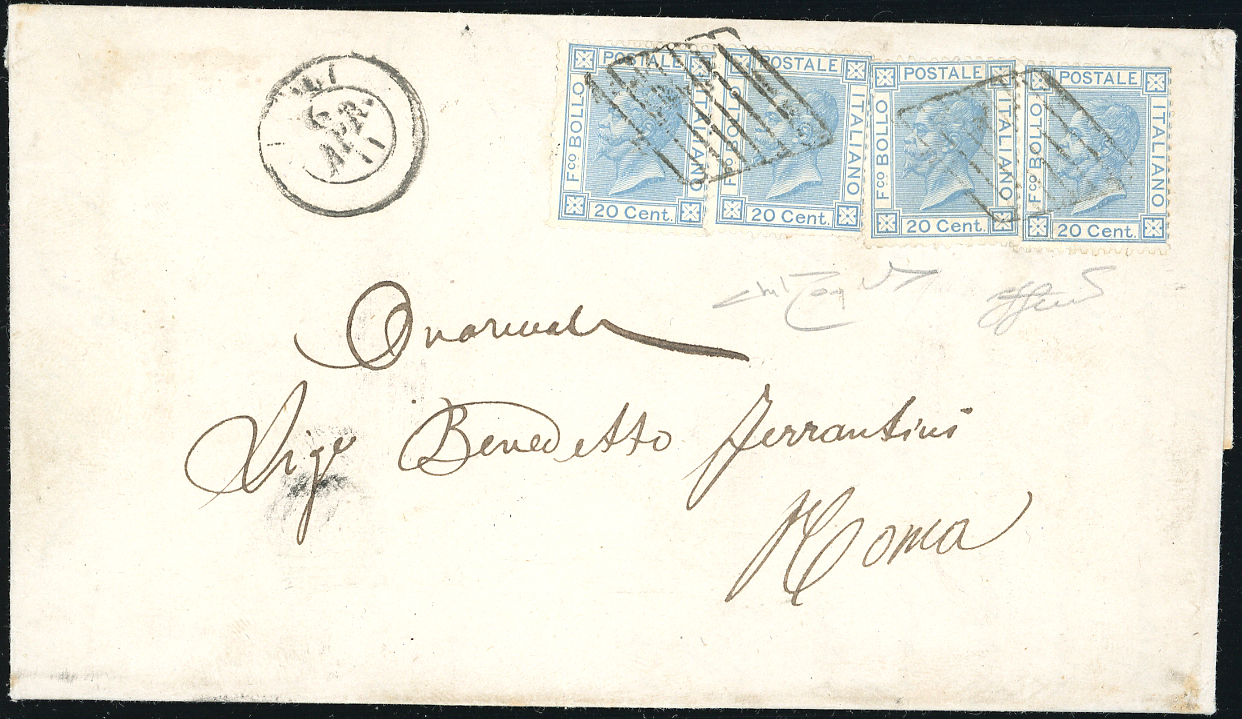 6
APR.
POSTALE
Fco BOLLO
ITALIANO
20 Cent.
POSTALE
Fco BOLLO
ITALIANO
20 Cent.
POSTALE
Fco BOLLO
ITALIANO
20 Cent.
POSTALE
Fco BOLLO
ITALIANO
20 Cent.
Benedetto Ferrantini
Roma